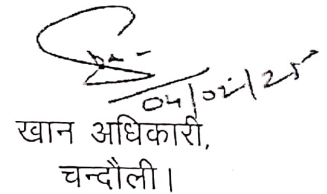 04/02/25
खान अधिकारी,
चन्दौली।